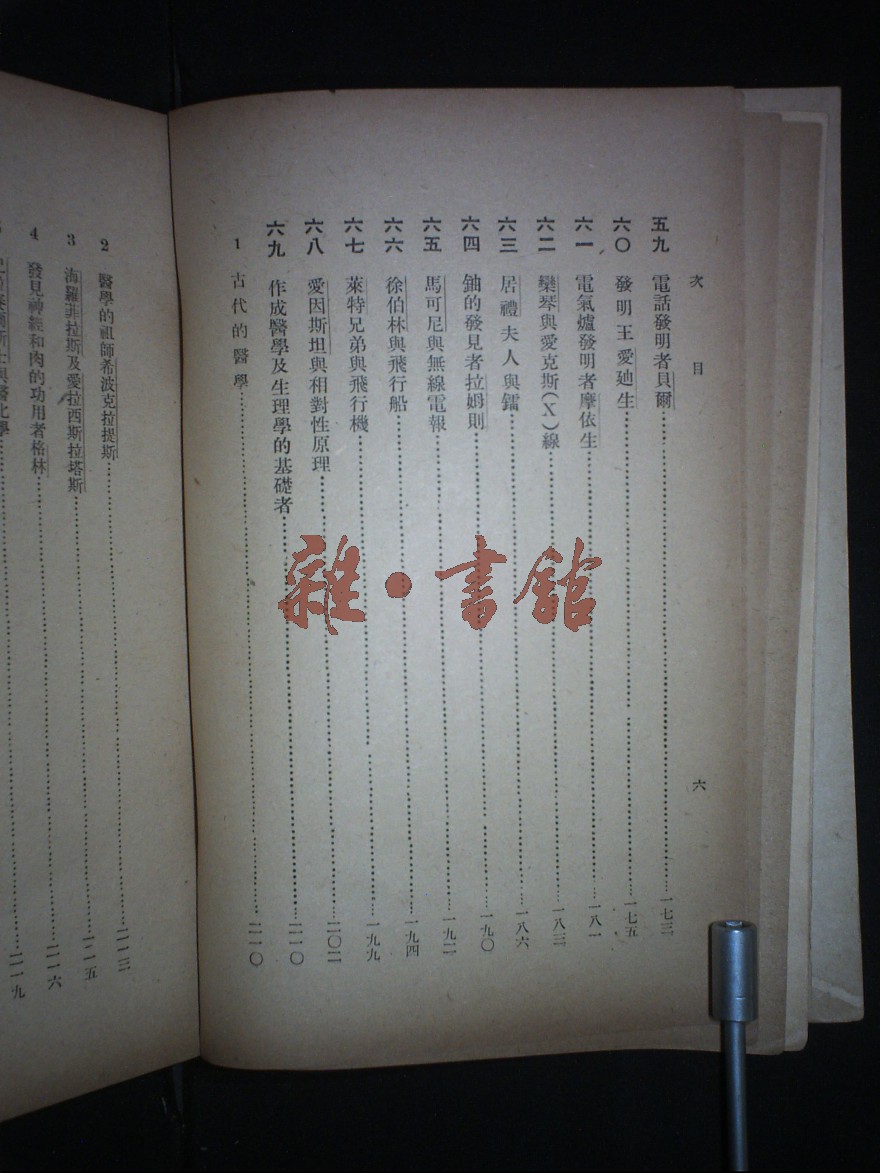 目次 六
五九 電話發明者貝爾……一七三
六〇 發明王愛廸生……一七五
六一 電氣爐發明者摩依生……一八一
六二 欒琴與愛克斯(X)線……一八三
六三 居禮夫人與鐳……一八六
六四 鈾的發見者拉姆則……一九〇
六五 馬可尼與無線電報……一九二
六六 徐伯林與飛行船……一九四
六七 萊特兄弟與飛行機……一九九
六八 愛因斯坦與相對性原理……二〇二
六九 作成醫學及生理學的基礎者……二一〇
1 古代的醫學……二一〇
2 醫學的祖師希波克拉提斯……二一三
3 海羅菲拉斯及愛拉西斯拉塔斯……二一五
4 發見神經和肉的功用者格林……二一六
二一九
雜·書館